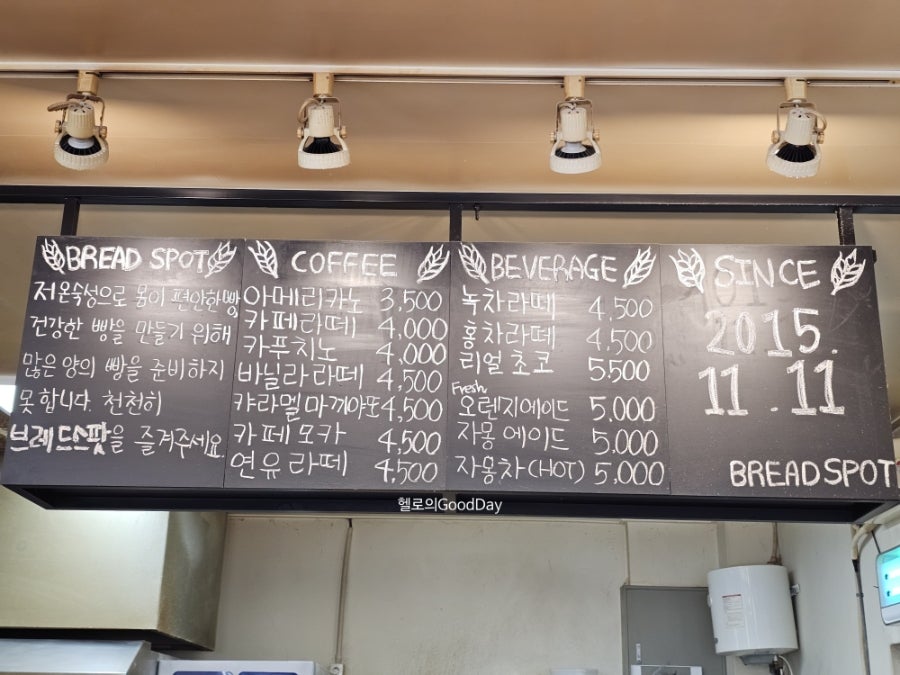 BREAD SPOT
저온숙성으로 몸이 편안한빵
건강한 빵을 만들기 위해
많은 양의 빵을 준비하지
못합니다. 천천히
브레드스팟을 즐겨주세요.
COFFEE
아메리카노 3,500
카페라떼 4,000
카푸치노 4,000
바닐라라떼 4,500
캬라멜마끼야또 4,500
카페모카 4,500
연유라떼 4,500
BEVERAGE
녹차라떼 4,500
홍차라떼 4,500
리얼초코 5,500
Fresh
오렌지에이드 5,000
자몽에이드 5,000
자몽차(HOT) 5,000
SINCE
2015.
11.11
BREADSPOT
헬로의GoodDay